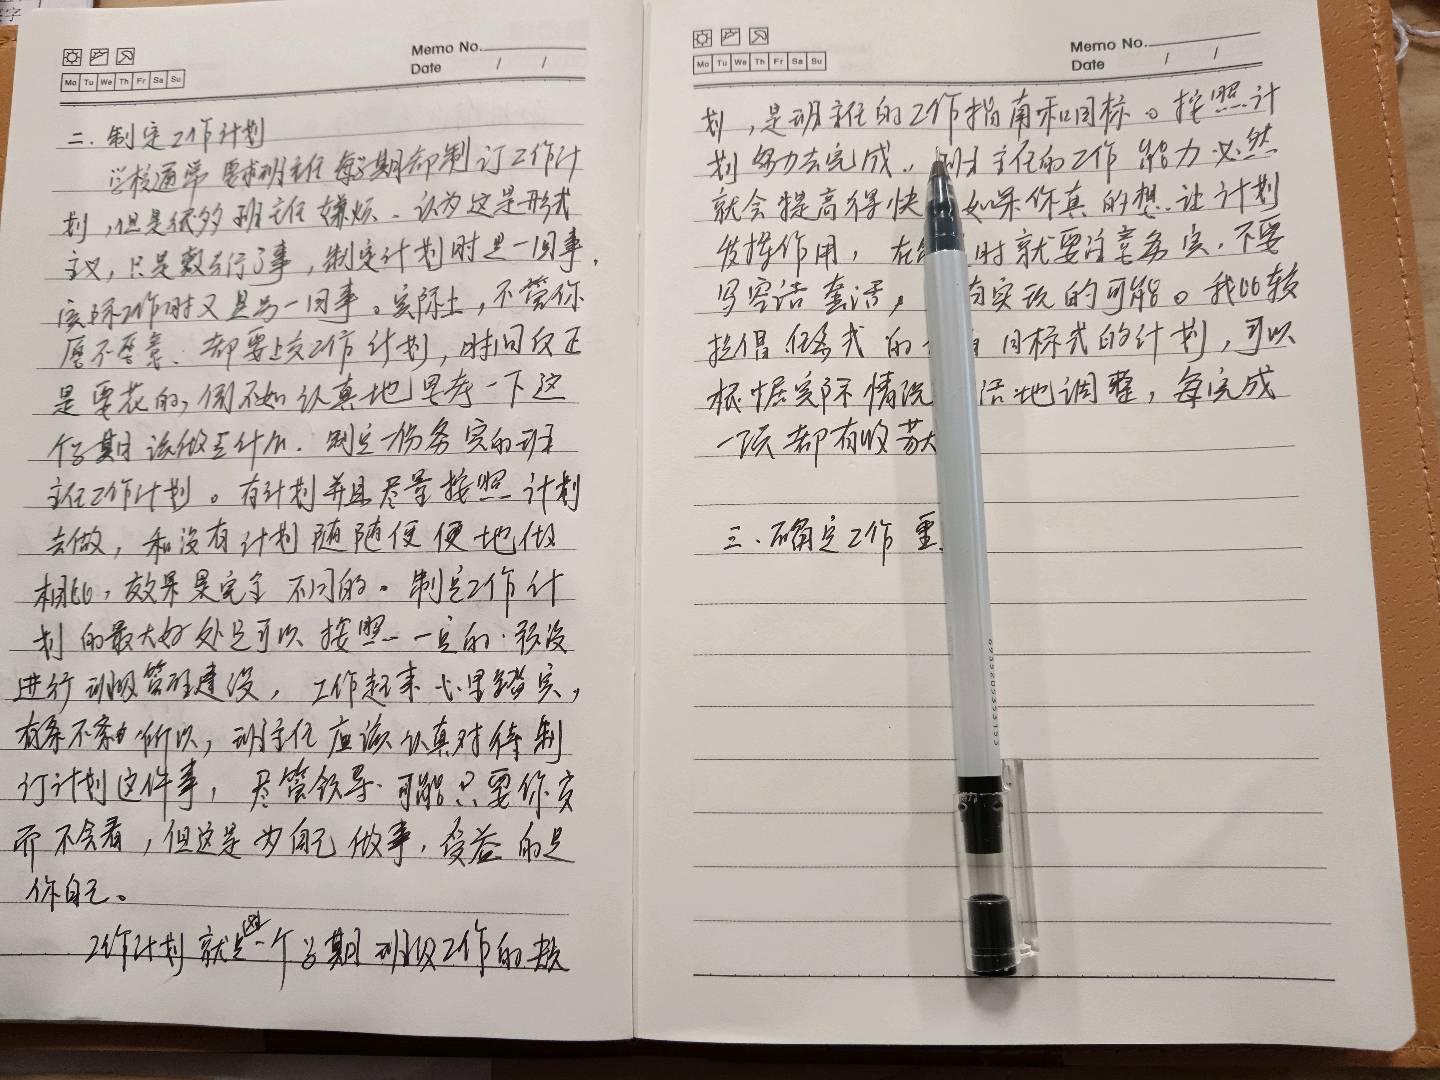 Memo No.
Date / /
Mo Tu We Th Fr Sa Su
二.制定工作计划
学校通常要求班主任每学期都制订工作计
划,但是很多班主任嫌烦、认为这是形式
主义,只是敷衍了事,制定计划时是一回事,
实际工作时又是另一回事。实际上,不管你
愿不愿意、都要上交工作计划,时间反正
是要花的,倒不如认真地思考一下这
个学期该做些什么.制定一份务实的班
主任工作计划。有计划并且尽量按照计划
去做,和没有计划随随便便地做
相比,效果是完全不同的。制定工作计
划的最大好处是可以按照一定的预设
进行班级管理建设,工作起来心里踏实,
有条不紊.所以,班主任应该认真对待制
订计划这件事,尽管领导可能只要你交
而不会看,但这是为自己做事,受益的是
你自己。
工作计划就是一个学期班级工作的规
Memo No.
Date / /
Mo Tu We Th Fr Sa Su
划,是班主任的工作指南和目标。按照计
划努力去完成.班主任的工作能力必然
就会提高得快 如果你真的想让计划
发挥作用,在 时就要注意务实,不要
写空话套话, 有实现的可能。我比较
提倡任务式的 目标式的计划,可以
根据实际情况 活地调整,每完成
一项都有收获
三.确定工作重
6935205353153